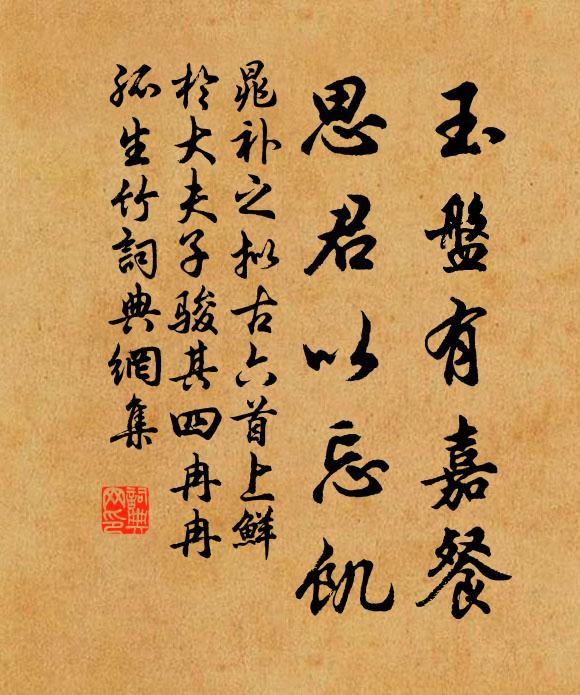 玉盤有嘉餐
思君以忘飢
晁补之拟古六首上鮮
於大夫子骏其四冉冉
孤生竹詞典網集
詞典
网印